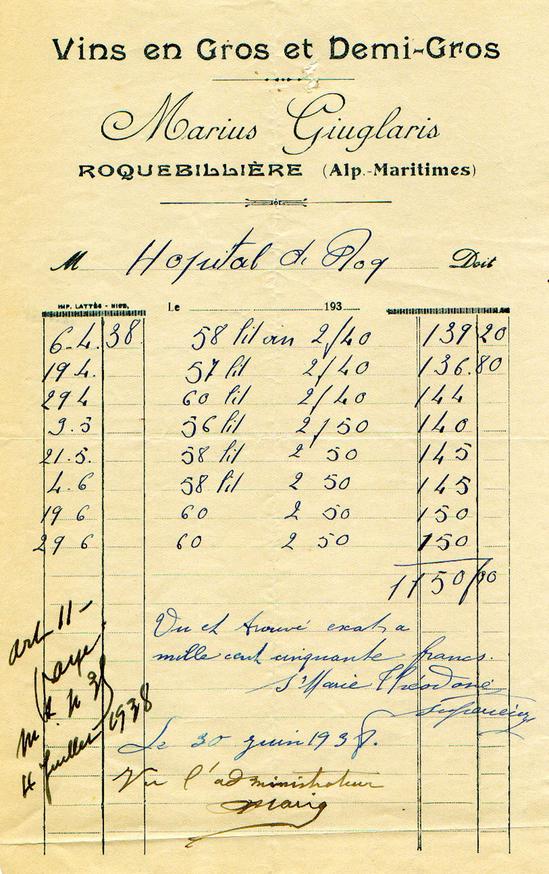 Vins en Gros et Demi-Gros
Marius Giuglaris
ROQUEBILLIÈRE (Alp.-Maritimes)
M Hopital de Roq Doit
IMP. LATTÈS - NICE. Le 193
6-4. 38. 58 lit vin 2/40 139 20
19 4. 57 lit 2/40 136.80
29 4 60 lit 2/40 144
3.5 56 lit 2/50 140
21.5. 58 lit 2 50 145
4.6 58 lit 2 50 145
19 6 60 2 50 150
29 6 60 2 50 150
1150/00
Vu et trouvé exact a
mille cent cinquante francs.
Sr Marie Théodore
Supérieure
Le 30 juin 1938.
Vu l'administrateur
art 11-
payé
4 Juillet 1938